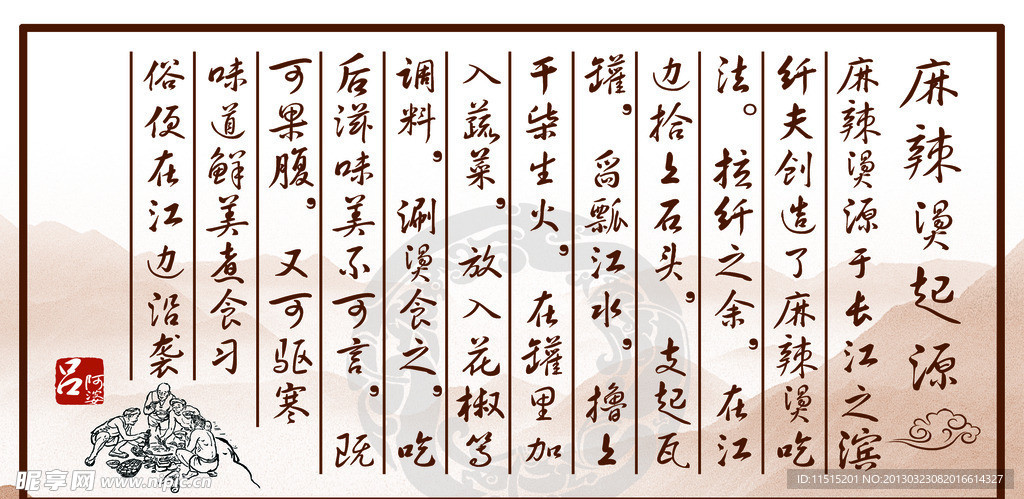 麻辣烫起源
麻辣烫源于长江之滨
纤夫创造了麻辣烫吃
法。拉纤之余，在江
边拾上石头，支起瓦
罐，舀瓢江水，撸上
干柴生火，在罐里加
入蔬菜，放入花椒等
调料，涮烫食之，吃
后滋味美不可言，既
可果腹，又可驱寒
味道鲜美煮食习
俗便在江边沿袭
吕
阿婆
昵享网 www.nipic.cn
ID:11515201 NO:20130323082016614327